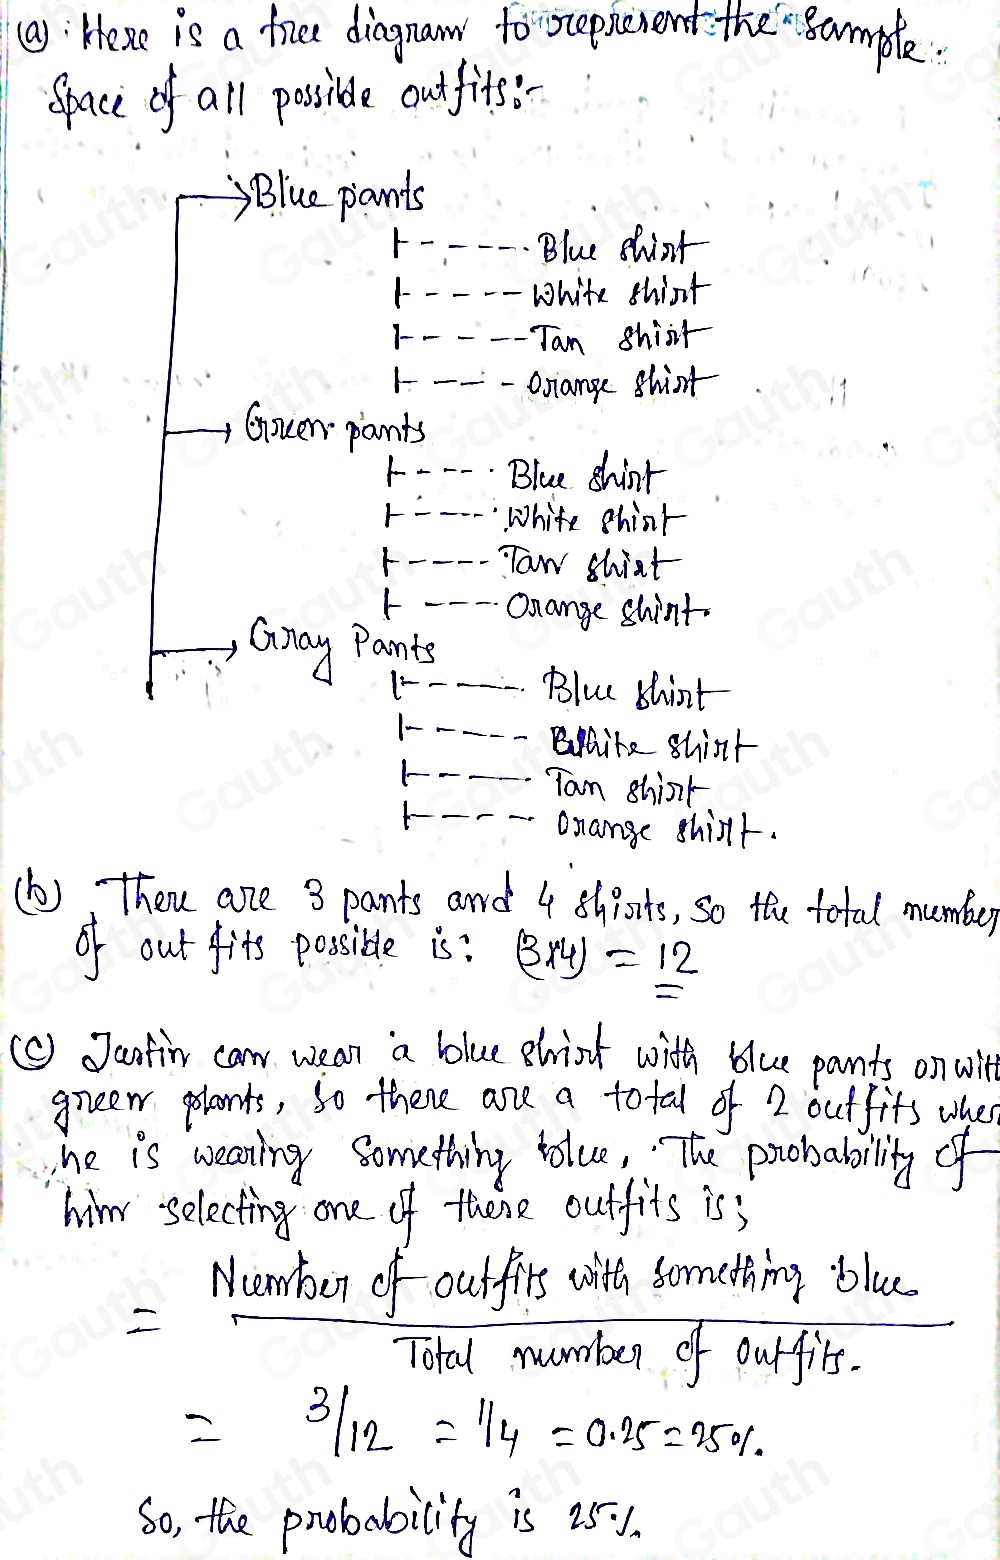 (a): Here is a tree diagram to represent the sample.
Space of all possible outfits:-
Blue pants
Blue shirt
White shirt
Tan shirt
Orange shirt
Green pants
Blue shirt
White shirt
Tan shirt
Orange shirt.
Gray Pants
Blue shirt
White shirt
Tan shirt
Orange shirt.
(b) There are 3 pants and 4 shirts, so the total number
of out fits possible is: (3x4) = 12
(c) Justin can wear a blue shirt with blue pants or with
green plants, so there are a total of 2 outfits when
he is wearing Something blue, The probability of
him selecting one of these outfits is;
= Number of outfits with something blue
Total number of outfits.
= 3/12 = 1/4 = 0.25 = 25%.
So, the probability is 25%.
Gauth